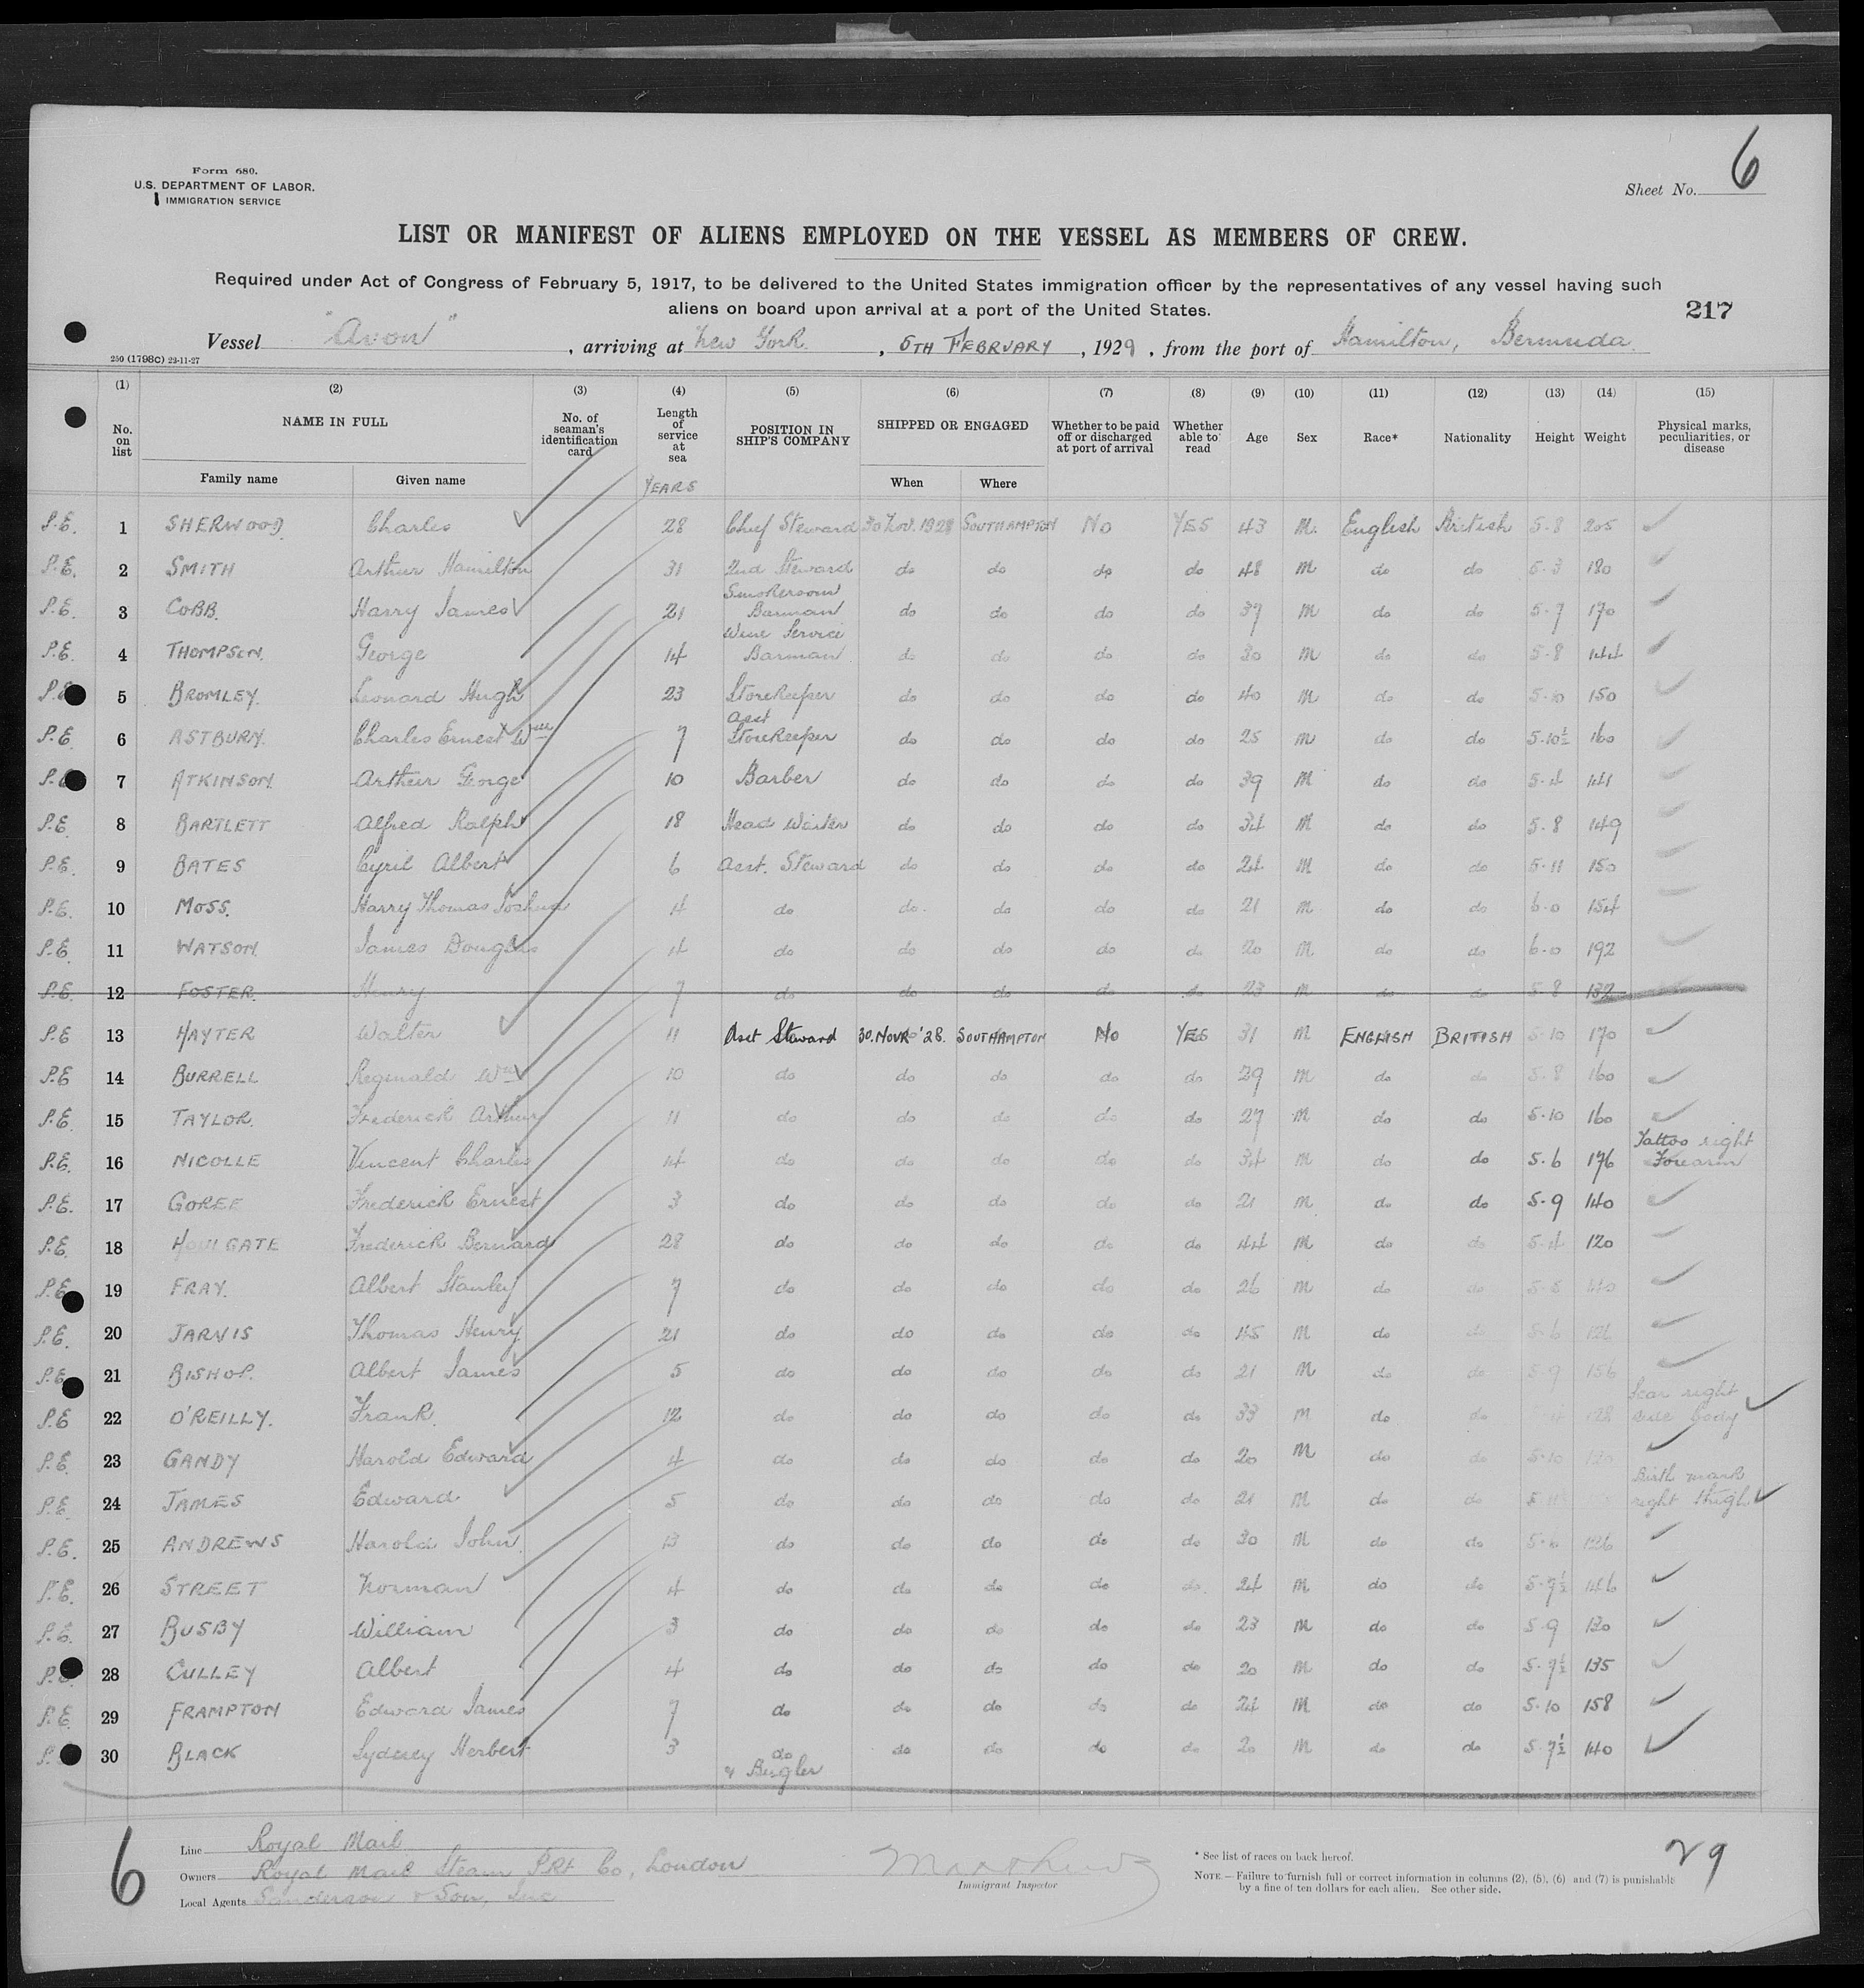 Form 680.
U.S. DEPARTMENT OF LABOR.
IMMIGRATION SERVICE
Sheet No. 6
LIST OR MANIFEST OF ALIENS EMPLOYED ON THE VESSEL AS MEMBERS OF CREW.
Required under Act of Congress of February 5, 1917, to be delivered to the United States immigration officer by the representatives of any vessel having such
aliens on board upon arrival at a port of the United States.
217
Vessel "Avon", arriving at New York, 5TH FEBRUARY, 1929, from the port of Hamilton, Bermuda.
250 (1798C) 22-11-27
(1) (2) (3) (4) (5) (6) (7) (8) (9) (10) (11) (12) (13) (14) (15)
No. on list NAME IN FULL No. of seaman's identification card Length of service at sea POSITION IN SHIP'S COMPANY SHIPPED OR ENGAGED Whether to be paid off or discharged at port of arrival Whether able to read Age Sex Race* Nationality Height Weight Physical marks, peculiarities, or disease
Family name Given name YEARS When Where
P.E. 1 SHERWOOD. Charles 28 Chief Steward 30 Nov. 1928 SOUTHAMPTON No YES 43 M. English British 5.8 205
P.E. 2 SMITH Arthur Hamilton 31 2nd Steward do do do do 48 M do do 5.3 180
P.E. 3 COBB. Harry James 21 Smokeroom Barman do do do do 37 M do do 5.7 170
P.E. 4 THOMPSON. George 14 Wine Service Barman do do do do 30 M do do 5.8 144
P.E. 5 BROMLEY. Leonard Hugh 23 Storekeeper do do do do 40 M do do 5.10 150
P.E. 6 ASTBURY. Charles Ernest Wm 7 Asst Storekeeper do do do do 25 M do do 5.10½ 160
P.E. 7 ATKINSON. Arthur George 10 Barber do do do do 39 M do do 5.4 141
P.E. 8 BARTLETT Alfred Ralph 18 Head Waiter do do do do 34 M do do 5.8 149
P.E. 9 BATES Cyril Albert 6 Asst. Steward do do do do 24 M do do 5.11 150
P.E. 10 MOSS. Harry Thomas Joshua 4 do do do do do 21 M do do 6.0 154
P.E. 11 WATSON. James Douglas 4 do do do do do 20 M do do 6.0 192
P.E. 12 FOSTER. Henry 7 do do do do do 23 M do do 5.8 132
P.E 13 HAYTER Walter 11 Asst Steward 30.NOVR '28. SOUTHAMPTON No YES 31 M ENGLISH BRITISH 5.10 170
P.E 14 BURRELL Reginald Wm 10 do do do do do 29 M do do 5.8 160
P.E. 15 TAYLOR. Frederick Arthur 11 do do do do do 27 M do do 5.10 160
P.E. 16 NICOLLE Vincent Charles 14 do do do do do 34 M do do 5.6 176 Tattoo right Forearm
P.E. 17 GOREE Frederick Ernest 3 do do do do do 21 M do do 5.9 140
P.E. 18 HOULGATE Frederick Bernard 28 do do do do do 44 M do do 5.4 120
P.E 19 FRAY. Albert Stanley 7 do do do do do 26 M do do 5.5 140
P.E. 20 JARVIS Thomas Henry 21 do do do do do 45 M do do 5.6 126
P.E 21 BISHOP. Albert James 5 do do do do do 21 M do do 5.9 156
P.E 22 O'REILLY. Frank. 12 do do do do do 33 M do do 128 Scar right side body
P.E. 23 GANDY Harold Edward 4 do do do do do 20 M do do 5.10
P.E. 24 JAMES Edward 5 do do do do do 21 M do do 5.11 Birth mark right thigh
P.E. 25 ANDREWS Harold John. 13 do do do do do 30 M do do 5.6 126
P.E. 26 STREET Norman 4 do do do do do 24 M do do 5.7½ 146
P.E. 27 BUSBY William 3 do do do do do 23 M do do 5.9 130
P.E 28 CULLEY Albert 4 do do do do do 20 M do do 5.7½ 135
P.E. 29 FRAMPTON Edward James 7 do do do do do 24 M do do 5.10 158
P. 30 BLACK Sydney Herbert 3 do & Bugler do do do do 20 M do do 5.7½ 140
6
Line Royal Mail
Owners Royal Mail Steam Pkt Co, London
Local Agents Sanderson & Son, Inc
Immigrant Inspector
* See list of races on back hereof.
NOTE.—Failure to furnish full or correct information in columns (2), (5), (6) and (7) is punishable
by a fine of ten dollars for each alien. See other side.
29